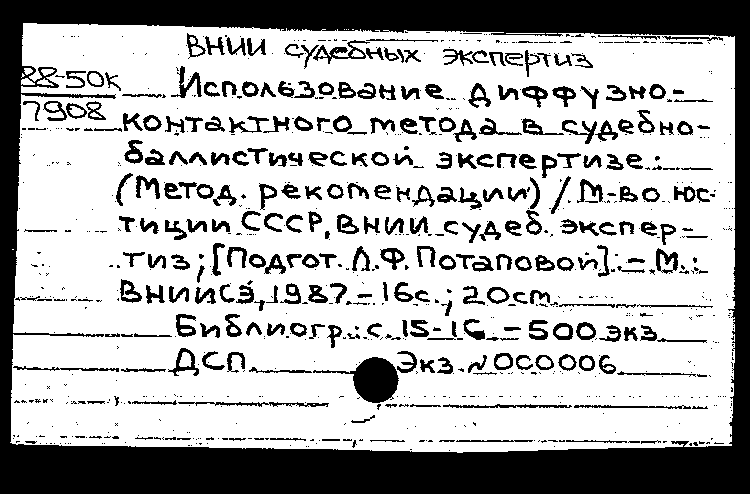 ВНИИ судебных экспертиз
88-50к Использование диффузно-
7908 контактного метода в судебно-
баллистической экспертизе:
(Метод. рекомендации) / М-во юс-
тиции СССР, ВНИИ судеб. экспер-
тиз; [Подгот. Л.Ф. Потаповой]. – М.:
ВНИИСЭ, 1987. – 16с.; 20ст.
Библиогр.: с. 15-16. – 500 экз.
ДСП. Экз. №000006.